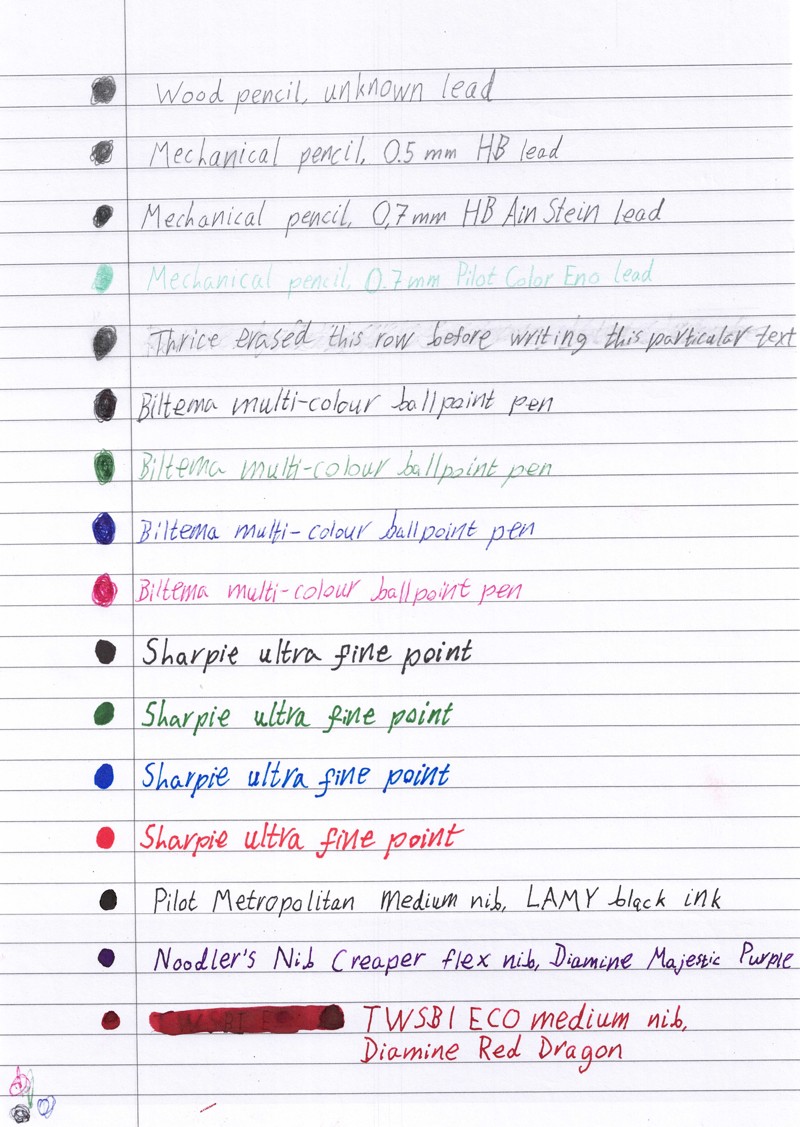 Wood pencil, unknown lead
Mechanical pencil, 0.5 mm HB lead
Mechanical pencil, 0,7 mm HB Ain Stein lead
Mechanical pencil, 0.7 mm Pilot Color Eno lead
Thrice erased this row before writing this particular text
Biltema multi-colour ballpoint pen
Biltema multi-colour ballpoint pen
Biltema multi-colour ballpoint pen
Biltema multi-colour ballpoint pen
Sharpie ultra fine point
Sharpie ultra fine point
Sharpie ultra fine point
Sharpie ultra fine point
Pilot Metropolitan Medium nib, LAMY black ink
Noodler's Nib Creaper flex nib, Diamine Majestic Purple
TWSBI ECO medium nib,
Diamine Red Dragon